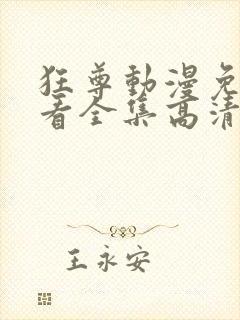 狂尊動漫免
看全集高清
王永安